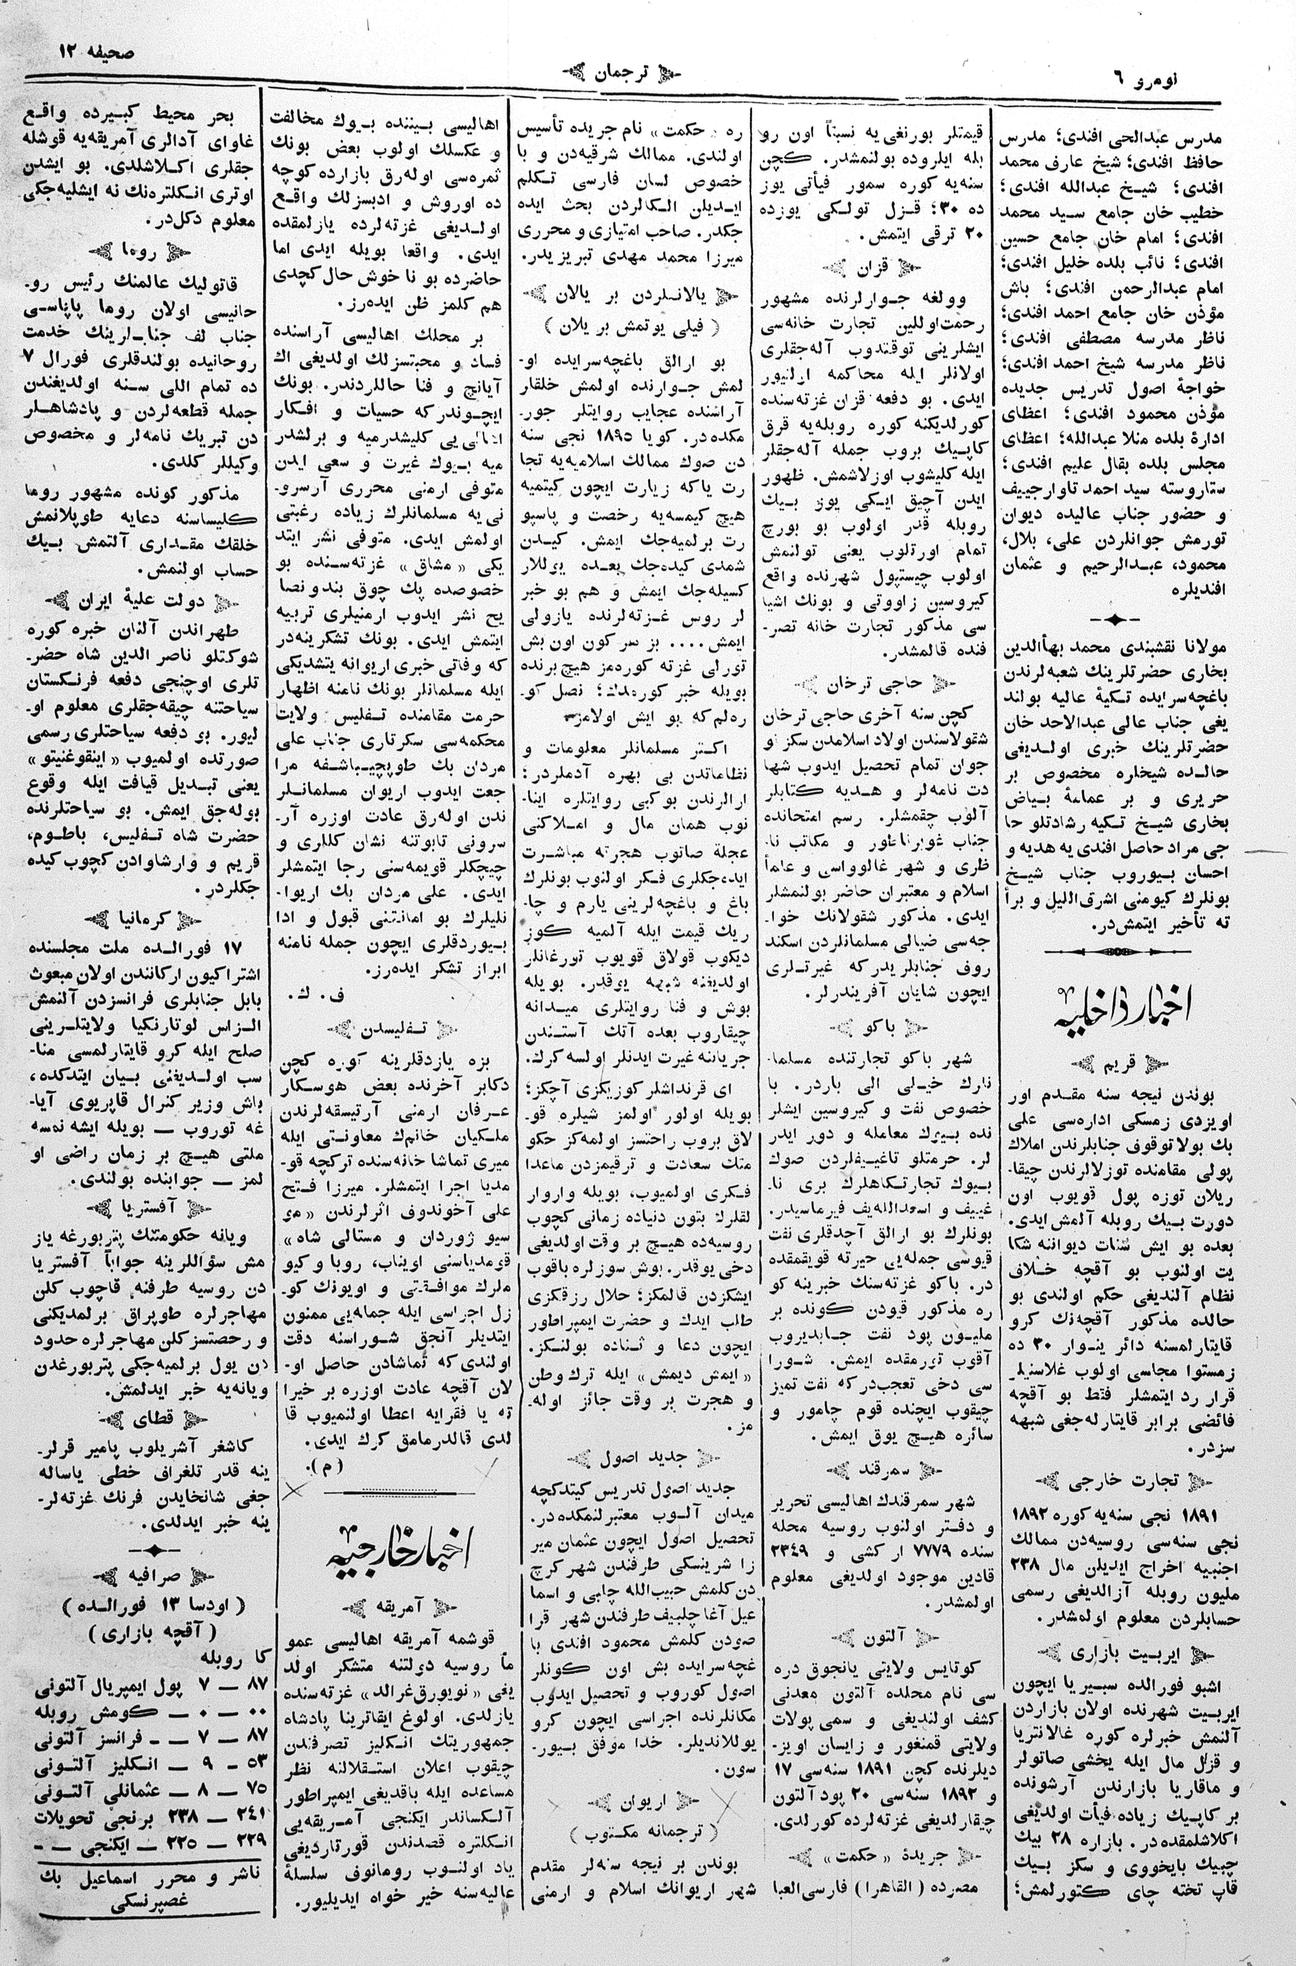 نومرو ٦
ترجمان
صحیفه ١٢
مدرس عبدالحی افندی؛ مدرس
حافظ افندی؛ شیخ عارف محمد
افندی؛ شیخ عبدالله افندی؛
خطیب خان جامع سید محمد
افندی؛ امام خان جامع حسین
افندی؛ نائب بلده خلیل افندی؛
امام عبدالرحمن افندی؛ باش
مؤذن خان جامع احمد افندی؛
ناظر مدرسه مصطفی افندی؛
ناظر مدرسه شیخ احمد افندی؛
خواجهٔ اصول تدریس جدیده
مؤذن محمود افندی؛ اعظای
ادارهٔ بلده منلا عبدالله؛ اعظای
مجلس بلده بقال علیم افندی؛
ستاروسته سید احمد تاوارجییف
و حضور جناب عالیده دیوان
تورمش جوانلردن علی، بلال،
محمود، عبدالرحیم و عثمان
افندیلره
مولانا نقشبندی محمد بهأالدین
بخاری حضرتلرینك شعبه‌لرندن
باغچه‌سرایده تکیهٔ عالیه بولند
یغی جناب عالی عبدالاحد خان
حضرتلرینك خبری اولدیغی
حالده شیخلره مخصوص بر
حریری و بر عمامهٔ بیاض
بخاری شیخ تکیه رشادتلو حا
جی مراد حاصل افندی‌یه هدیه و
احسان بیوروب جناب شیخ
بونلرك کیومنی اشرق اللیل و برأ
ته تأخیر ایتمش‌در.
اخبار داخلیه
قریم
بوندن نیجه سنه مقدم اور
اویزدی زمسکی اداره‌سی علی
بك بولاتوقوف جنابلرندن املاك
پولی مقامنده توزلالرندن چیقا-
ریلان توزه پول قویوب اون
دورت بیك روبله آلمش ایدی.
بعده بو ایش سنات دیواننه شکا
یت اولنوب بو آقچه خلاف
نظام آلندیغی حکم اولندی بو
حالده مذکور آقچه‌نك کرو
قایتارلمسنه دائر ینوار ٣٠ ده
زمستوا مجلسی اولوب غلاسنیلر
قرار رد ایتمشلر فقط بو آقچه
فائضی برابر قایتارله‌جغی شبهه
سزدر.
تجارت خارجی
١٨٩١ نجی سنه‌یه کوره ١٨٩٢
نجی سنه‌سی روسیه‌دن ممالك
اجنبیه اخراج ایدیلن مال ٢٣٨
ملیون روبله آزالدیغی رسمی
حسابلردن معلوم اولمشدر.
ایربیت بازاری
اشبو فورالده سبیریا ایچون
ایربیت شهرنده اولان بازاردن
آلنمش خبرلره کوره غالانتریا
و قزل مال ایله یخشی صاتولر
و ماقاریا بازارندن آرشونده
بر کاپیك زیاده فیأت اولدیغی
اکلاشلمقده‌در. بازاره ٢٨ بیك
چیبیك بایخووی و سکز بیك
قاپ تخته چای کتورلمش؛
قیمتلر بورنغی‌یه نسبتاً اون رو
بله ایلروده بولنمشدر. کچن
سنه‌یه کوره سمور فیأتی یوز
ده ٣٠؛ قزل تولکی یوزده
٢٠ ترقی ایتمش.
قزان
وولغه جوارلرنده مشهور
رحمت‌اوللین تجارت خانه‌سی
ایشلرینی توقتدوب آله‌جقلری
اولانلر ایله محاکمه اولنیور
ایدی. بو دفعه قزان غزته‌سنده
کورلدیکنه کوره روبله‌یه قرق
کاپیك بروب جمله آله‌جقلر
ایله کلیشوب اوزلاشمش. ظهور
ایدن آچیق ایکی یوز بیك
روبله قدر اولوب بو بورچ
تمام اورتلوب یعنی تولنمش
اولوب چیستپول شهرنده واقع
کیروسین زاووتی و بونك اشیا
سی مذکور تجارت خانه تصر-
فنده قالمشدر.
حاجی ترخان
کچن سنه آخری حاجی ترخان
شقولاسندن اولاد اسلامدن سکز نو
جوان تمام تحصیل ایدوب شها
دت نامه‌لر و هدیه کتابلر
آلوب چقمشلر. رسم امتحانده
جناب غوبرناطور و مکاتب نا-
ظری و شهر غالوواسی و عامأ
اسلام و معتبران حاضر بولنمشلر
ایدی. مذکور شقولانك خوا-
جه‌سی ضیالی مسلمانلردن اسکند
روف جنابلریدر که غیرتلری
ایچون شایان آفریندرلر.
باکو
شهر باکو تجارتنده مسلما-
نلرك خیلی الی باردر. با
خصوص نفت و کیروسین ایشلر
نده بیوك معامله و دور ایدر
لر. حرمتلو تاغییفلردن صوك
بیوك تجارتکاهلرك بری نا-
غییف و اسدالله‌یف فیرماسیدر.
بونلرك بو ارالق آچدقلری نفت
قیوسی جمله‌یی حیرته قویقمقده
در. باکو غزته‌سنك خبرینه کو
ره مذکور قیودن کونده بر
ملیون پود نفت جابدیروب
آقوب تورمقده ایمش. شورا
سی دخی تعجب‌در که نفت تمیز
چیقوب ایچنده قوم چامور و
سائره هیچ یوق ایمش.
سمرقند
شهر سمرقندك اهالیسی تحریر
و دفتر اولنوب روسیه محله
سنده ٧٧٧٩ ار کشی و ٢٣٤٩
قادین موجود اولدیغی معلوم
اولمشدر.
آلتون
کوتایس ولایتی یانجوق دره
سی نام محلده آلتون معدنی
کشف اولندیغی و سمی پولات
ولایتی قمنغور و زایسان اویز-
دیلرنده کچن ١٨٩١ سنه‌سی ١٧
و ١٨٩٢ سنه‌سی ٢٠ پود آلتون
چیقارلدیغی غزته‌لرده کورلدی.
جریدهٔ «حکمت»
مصرده (القاهرا) فارسی العبا
ره «حکمت» نام جریده تأسیس
اولندی. ممالك شرقیه‌دن و با
خصوص لسان فارسی تکلم
ایدیلن الکالردن بحث ایده
جکدر. صاحب امتیازی و محرری
میرزا محمد مهدی تبریزیدر.
یالانلردن بر یالان
(فیلی یوتمش بر یلان)
بو ارالق باغچه‌سرایده او-
لمش جوارنده اولمش خلقلر
آراشنده عجایب روایتلر جور-
مکده‌در. کویا ١٨٩٥ نجی سنه
دن صوك ممالك اسلامیه‌یه تجا
رت یاکه زیارت ایچون کیتمیه
هیچ کیمسه‌یه رخصت و پاسپو
رت برلمیه‌جك ایمش. کیدن
شمدی کیده‌جك بعده یوللار
کسیله‌جك ایمش و هم بو خبر
لر روس غزته‌لرنده یازولی
ایمش.... بز سر کون اون بش
تورلی غزته کوره‌مز هیچ برنده
بویله خبر کورمدك؛ نصل کو-
ره‌لم که بو ایش اولامز
اکثر مسلمانلر معلومات و
نظاماتدن بی بهره آدملردر؛
ارالرندن بوکبی روایتلره اینا-
نوب همان مال و املاکنی
عجلهٔ صاتوب هجرته مباشرت
ایده‌جکلری فکر اولنوب بونلرك
باغ و باغچه‌لرینی یارم و چا-
ریك قیمت ایله آلمیه کوز
دیکوب قولاق قویوب تورغانلر
اولدیغنه شبهه یوقدر. بویله
بوش و فنا روایتلری میدانه
چیقاروب بعده آتك آستندن
جریانه غیرت ایدنلر اولسه کرك.
ای قرنداشلر کوزیکزی آچکز؛
بویله اولور اولمز شیلره قو-
لاق بروب راحتسز اولمه‌کز حکو
متك سعادت و ترقیمزدن ماعدا
فکری اولمیوب، بویله واروار
لقلرك بتون دنیاده زمانی کچوب
روسیه‌ده هیچ بر وقت اولدیغی
دخی یوقدر. بوش سوزلره باقوب
ایشکزدن قالمکز؛ حلال رزقکزی
طلب ایدك و حضرت ایمپراطور
ایچون دعا و ثناده بولنکز.
«ایمش دیمش» ایله ترك وطن
و هجرت بر وقت جائز اوله-
مز.
جدید اصول
جدید اصول تدریس کیتدکچه
میدان آلوب معتبرلنمکده‌در.
تحصیل اصول ایچون عثمان میر
زا شرینسکی طرفندن شهر کرچ
دن کلمش حبیب‌الله چلبی و اسما
عیل آغا چلبیف طرفندن شهر قرا
صودن کلمش محمود افندی با
غچه‌سرایده بش اون کونلر
اصول کوروب و تحصیل ایدوب
مکانلرنده اجراسی ایچون کرو
یوللاندیلر. خدا موفق بیور-
سون.
اریوان
(ترجمانه مکتوب)
بوندن بر نیجه سنه‌لر مقدم
شهر اریوانك اسلام و ارمنی
اهالیسی بیننده بیوك مخالفت
و عکسلك اولوب بعض بونك
ثمره‌سی اوله‌رق بازارده کوچه
ده اوروش و ادبسزلك واقع
اولدیغی غزته‌لرده یازلمقده
ایدی. واقعا بویله ایدی اما
حاضرده بو نا خوش حال کچدی
هم کلمز ظن ایده‌رز.
بر محلك اهالیسی آراسنده
فساد و محبتسزلك اولدیغی اك
آیانچ و فنا حاللردندر. بونك
ایچوندر که حسیات و افکار
اهالی‌یی کلیشدرمیه و برلشدر
میه بیوك غیرت و سعی ایدن
متوفی ارمنی محرری آرسرو-
نی‌یه مسلمانلرك زیاده رغبتی
اولمش ایدی. متوفی نشر ایتد
یکی «مشاق» غزته‌سنده بو
خصوصده پك چوق بندو نصا
یح نشر ایدوب ارمنیلری تربیه
ایتمش ایدی. بونك تشکرینه‌در
که وفاتی خبری اریوانه یتشدیکی
ایله مسلمانلر بونك نامنه اظهار
حرمت مقامنده تفلیس ولایت
محکمه‌سی سکرتاری جناب علی
مردان بك طوپچی‌باشفه مرا
جعت ایدوب اریوان مسلمانلر
ندن اوله‌رق عادت اوزره آر-
سرونی تابوتنه نشان کللری و
چیچکلر قویمه‌سنی رجا ایتمشلر
ایدی. علی مردان بك اریوا-
نلیلرك بو امانتنی قبول و ادا
بیوردقلری ایچون جمله نامنه
ابراز تشکر ایده‌رز.
ف. ك.
تفلیسدن
بزه یازدقلرینه کوره کچن
دکابر آخرنده بعض هوسکار
عرفان ارمنی آرتیسقه‌لرندن
ملکیان خانمك معاونتی ایله
میری تماشا خانه‌سنده ترکچه قو-
مدیا اجرا ایتمشلر. میرزا فتح
علی آخوندوف اثرلرندن «مو
سیو ژوردان و مستالی شاه»
قومدیاسنی اویناب، روبا و کیو
ملرك موافقتی و اویونك کو-
زل اجراسی ایله جمله‌یی ممنون
ایتدیلر آنجق شوراسنه دقت
اولندی که تماشادن حاصل او-
لان آقچه عادت اوزره بر خیرا
ته یا فقرایه اعطا اولنمیوب قا
لدی قالدرمامق کرك ایدی.
(م).
اخبار خارجیه
آمریقه
قوشمه آمریقه اهالیسی عمو
مأ روسیه دولتنه متشکر اولد
یغی «نویورق‌غرالد» غزته‌سنده
یازلدی. اولوغ ایقاترینا پادشاه
جمهوریتك انکلیز تصرفندن
چیقوب اعلان استقلالنه نظر
مساعده ایله باقدیغی ایمپراطور
آلکساندر ایکنجی آمریقه‌یی
انکلتره قصدندن قورتاردیغی
یاد اولنوب رومانوف سلسلهٔ
عالیه‌سنه خیر خواه ایدیلیور.
بحر محیط کبیرده واقع
غاوای آدالری آمریقه‌یه قوشله
جقلری اکلاشلدی. بو ایشدن
اوتری انکلتره‌نك نه ایشلیه‌جکی
معلوم دکل‌در.
روما
قاتولیك عالمنك رئیس رو-
حانیسی اولان روما پاپاسی
جناب لف جنابلرینك خدمت
روحانیده بولندقلری فورال ٧
ده تمام اللی سنه اولدیغندن
جمله قطعه‌لردن و پادشاهلر
دن تبریك نامه‌لر و مخصوص
وکیللر کلدی.
مذکور کونده مشهور روما
کلیساسنه دعایه طوپلانمش
خلقك مقداری آلتمش بیك
حساب اولنمش.
دولت علیهٔ ایران
طهراندن آلنان خبره کوره
شوکتلو ناصر الدین شاه حضر-
تلری اوچنجی دفعه فرنکستان
سیاحتنه چیقه‌جقلری معلوم او-
لیور. بو دفعه سیاحتلری رسمی
صورتده اولمیوب «اینقوغنیتو»
یعنی تبدیل قیافت ایله وقوع
بوله‌جق ایمش. بو سیاحتلرنده
حضرت شاه تفلیس، باطوم،
قریم و وارشاوادن کچوب کیده
جکلردر.
کرمانیا
١٧ فورالده ملت مجلسنده
اشتراکیون ارکانندن اولان مبعوث
بابل جنابلری فرانسزدن آلنمش
الزاس لوتارنکیا ولایتلرینی
صلح ایله کرو قایتارلمسی منا-
سب اولدیغنی بیان ایتدکده،
باش وزیر کنرال قاپریوی آیا-
غه توروب — بویله ایشه نمسه
ملتی هیچ بر زمان راضی او
لمز — جوابنده بولندی.
آفستریا
ویانه حکومتنك پتربورغه یاز
مش سؤاللرینه جواباً آفستریا
دن روسیه طرفنه، قاچوب کلن
مهاجرلره طوپراق برلمدیکنی
و رخصتسز کلن مهاجرلره حدود
دن یول برلمیه‌جکی پتربورغدن
ویانه‌یه خبر ایدلمش.
قطای
کاشغر آشریلوب پامیر قرلر-
ینه قدر تلغراف خطی یاساله
جغی شانخایدن فرنك غزته‌لر-
ینه خبر ایدلدی.
صرافیه
(اودسا ١٣ فورالده)
(آقچه بازاری)
کا روبله
٨٧ — ٧ پول ایمپریال آلتونی
٠٠ — ٠ — کومش روبله
٨٧ — ٧ — فرانسز آلتونی
٥٣ — ٩ — انکلیز آلتونی
٧٥ — ٨ — عثمانلی آلتونی
٢٤١ — ٢٣٨ برنجی تحویلات
٢٢٩ — ٢٢٥ — ایکنجی — -
ناشر و محرر اسماعیل بك
غصپرنسکی